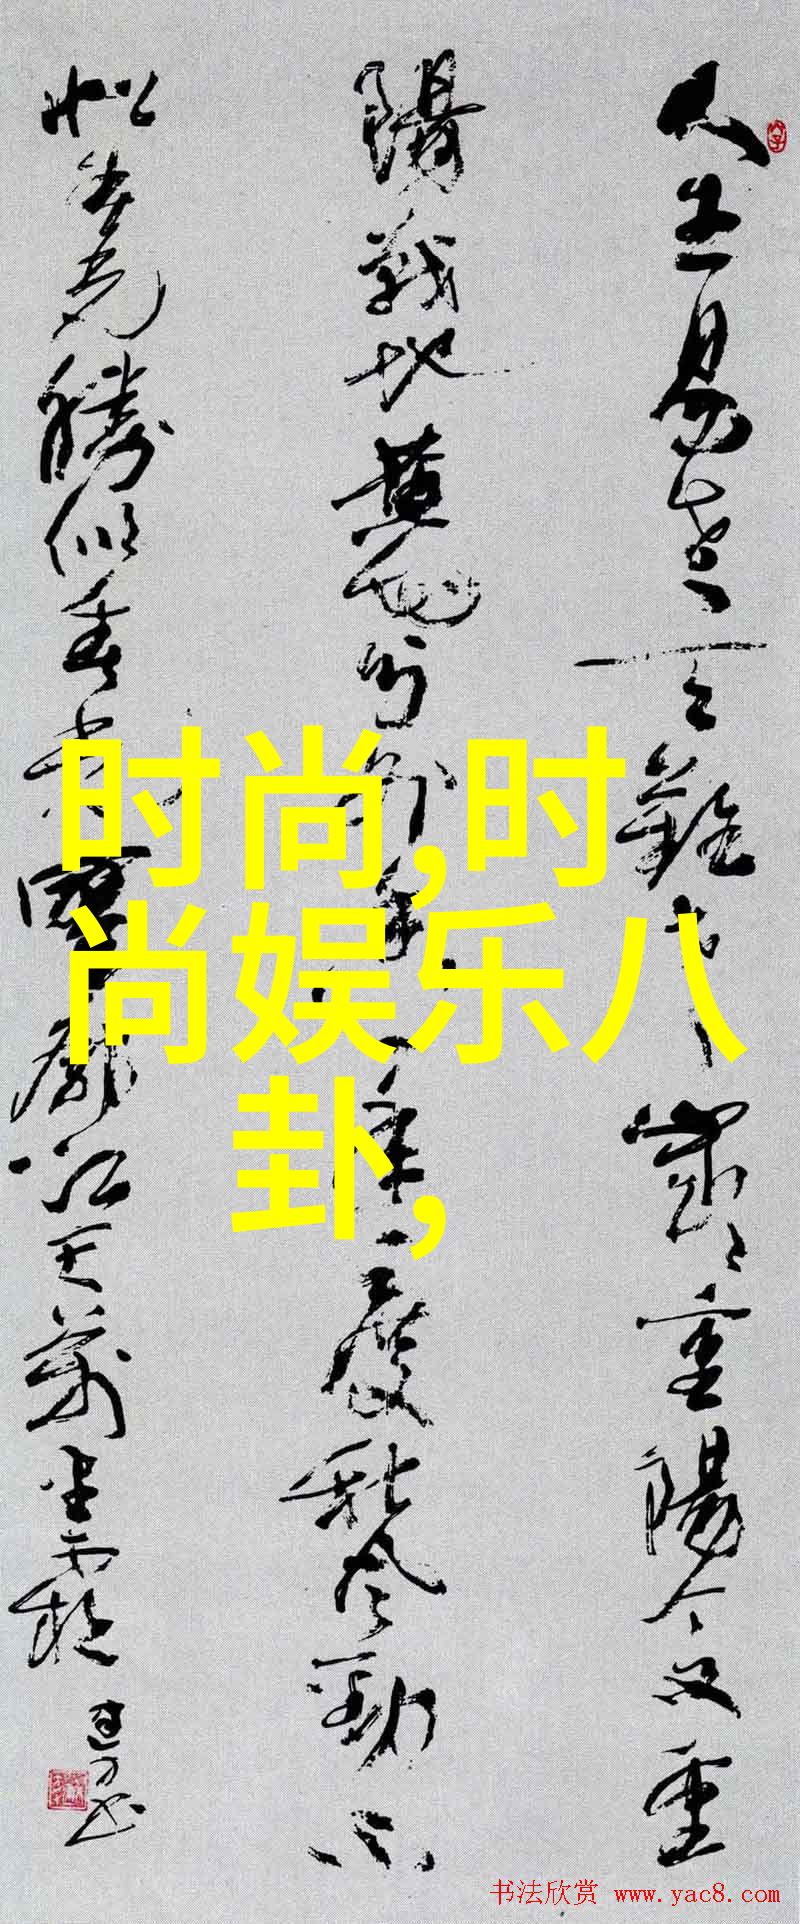 人生易老天難老歲歲重陽今又重
陽戰地黃花分外香一年一度秋風勁不
似春光勝似春光寥廓江天萬里霜
时尚,时
尚娱乐八
卦,
书法欣赏 www.yac8.com